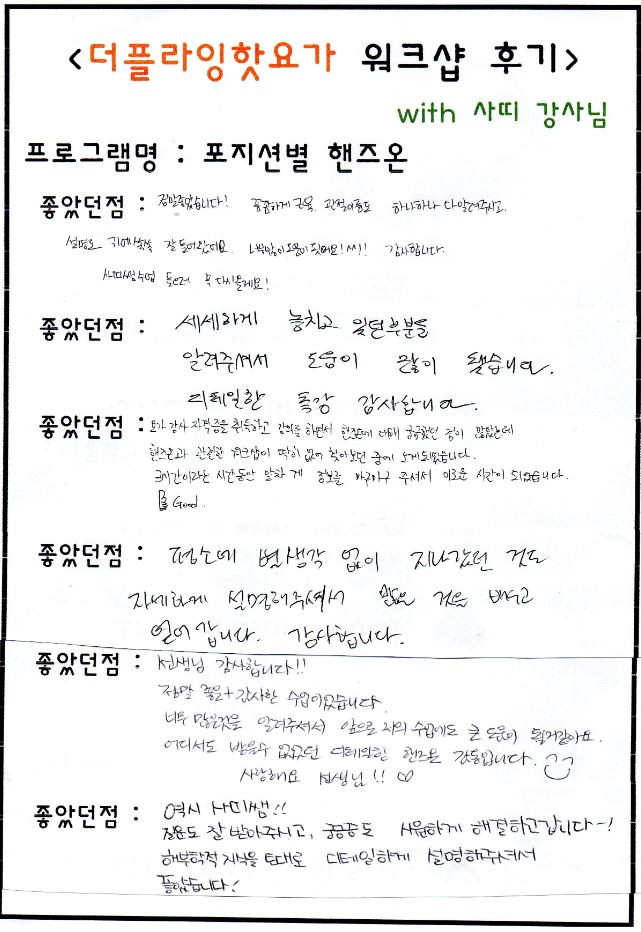 <더플라잉핫요가 워크샵 후기>
with 사띠 강사님
프로그램명 : 포지션별 핸즈온
좋았던점 : 정말좋았습니다! 꼼꼼하게 근육, 관절이름도 하나하나 다알려주시고,
설명도 귀에쏙쏙 잘 들어왔어요. 너무많이도움이됫어요! 감사합니다.
사띠쌤수업 들으러 또 다시올게요!
좋았던점 : 세세하게 놓치고 있던부분을
알려주셔서 도움이 많이 됐습니다.
디테일한 특강 감사합니다.
좋았던점 : 요가 강사 자격증을 취득하고 강의를 하면서 핸즈온에 대해 궁금했던 점이 많았는데
핸즈온과 관련한 워크샵이 딱히 없어 찾아보던 중에 오게되었습니다.
3시간이라는 시간동안 알차게 정보를 마구마구 주셔서 이로운 시간이 되었습니다.
Good.
좋았던점 : 평소에 별생각 없이 지나갔던 것도
자세하게 설명해주셔서 많은 것을 배우고
얻어 갑니다. 감사합니다.
좋았던점 : 선생님 감사합니다!!
정말 좋은+감사한 수업이었습니다.
너무 많은것을 알려주셔서 앞으로 저의 수업에도 큰 도움이 될거같아요.
어디서도 받을수 없었던 디테일한 핸즈온 감동입니다.
사랑해요 선생님!! ♡
좋았던점 : 역시 사띠쌤!!
질문도 잘 받아주시고, 궁금증도 시원하게 해결하고갑니다~!
해부학적 지식을 토대로 디테일하게 설명해주셔서
좋았습니다!